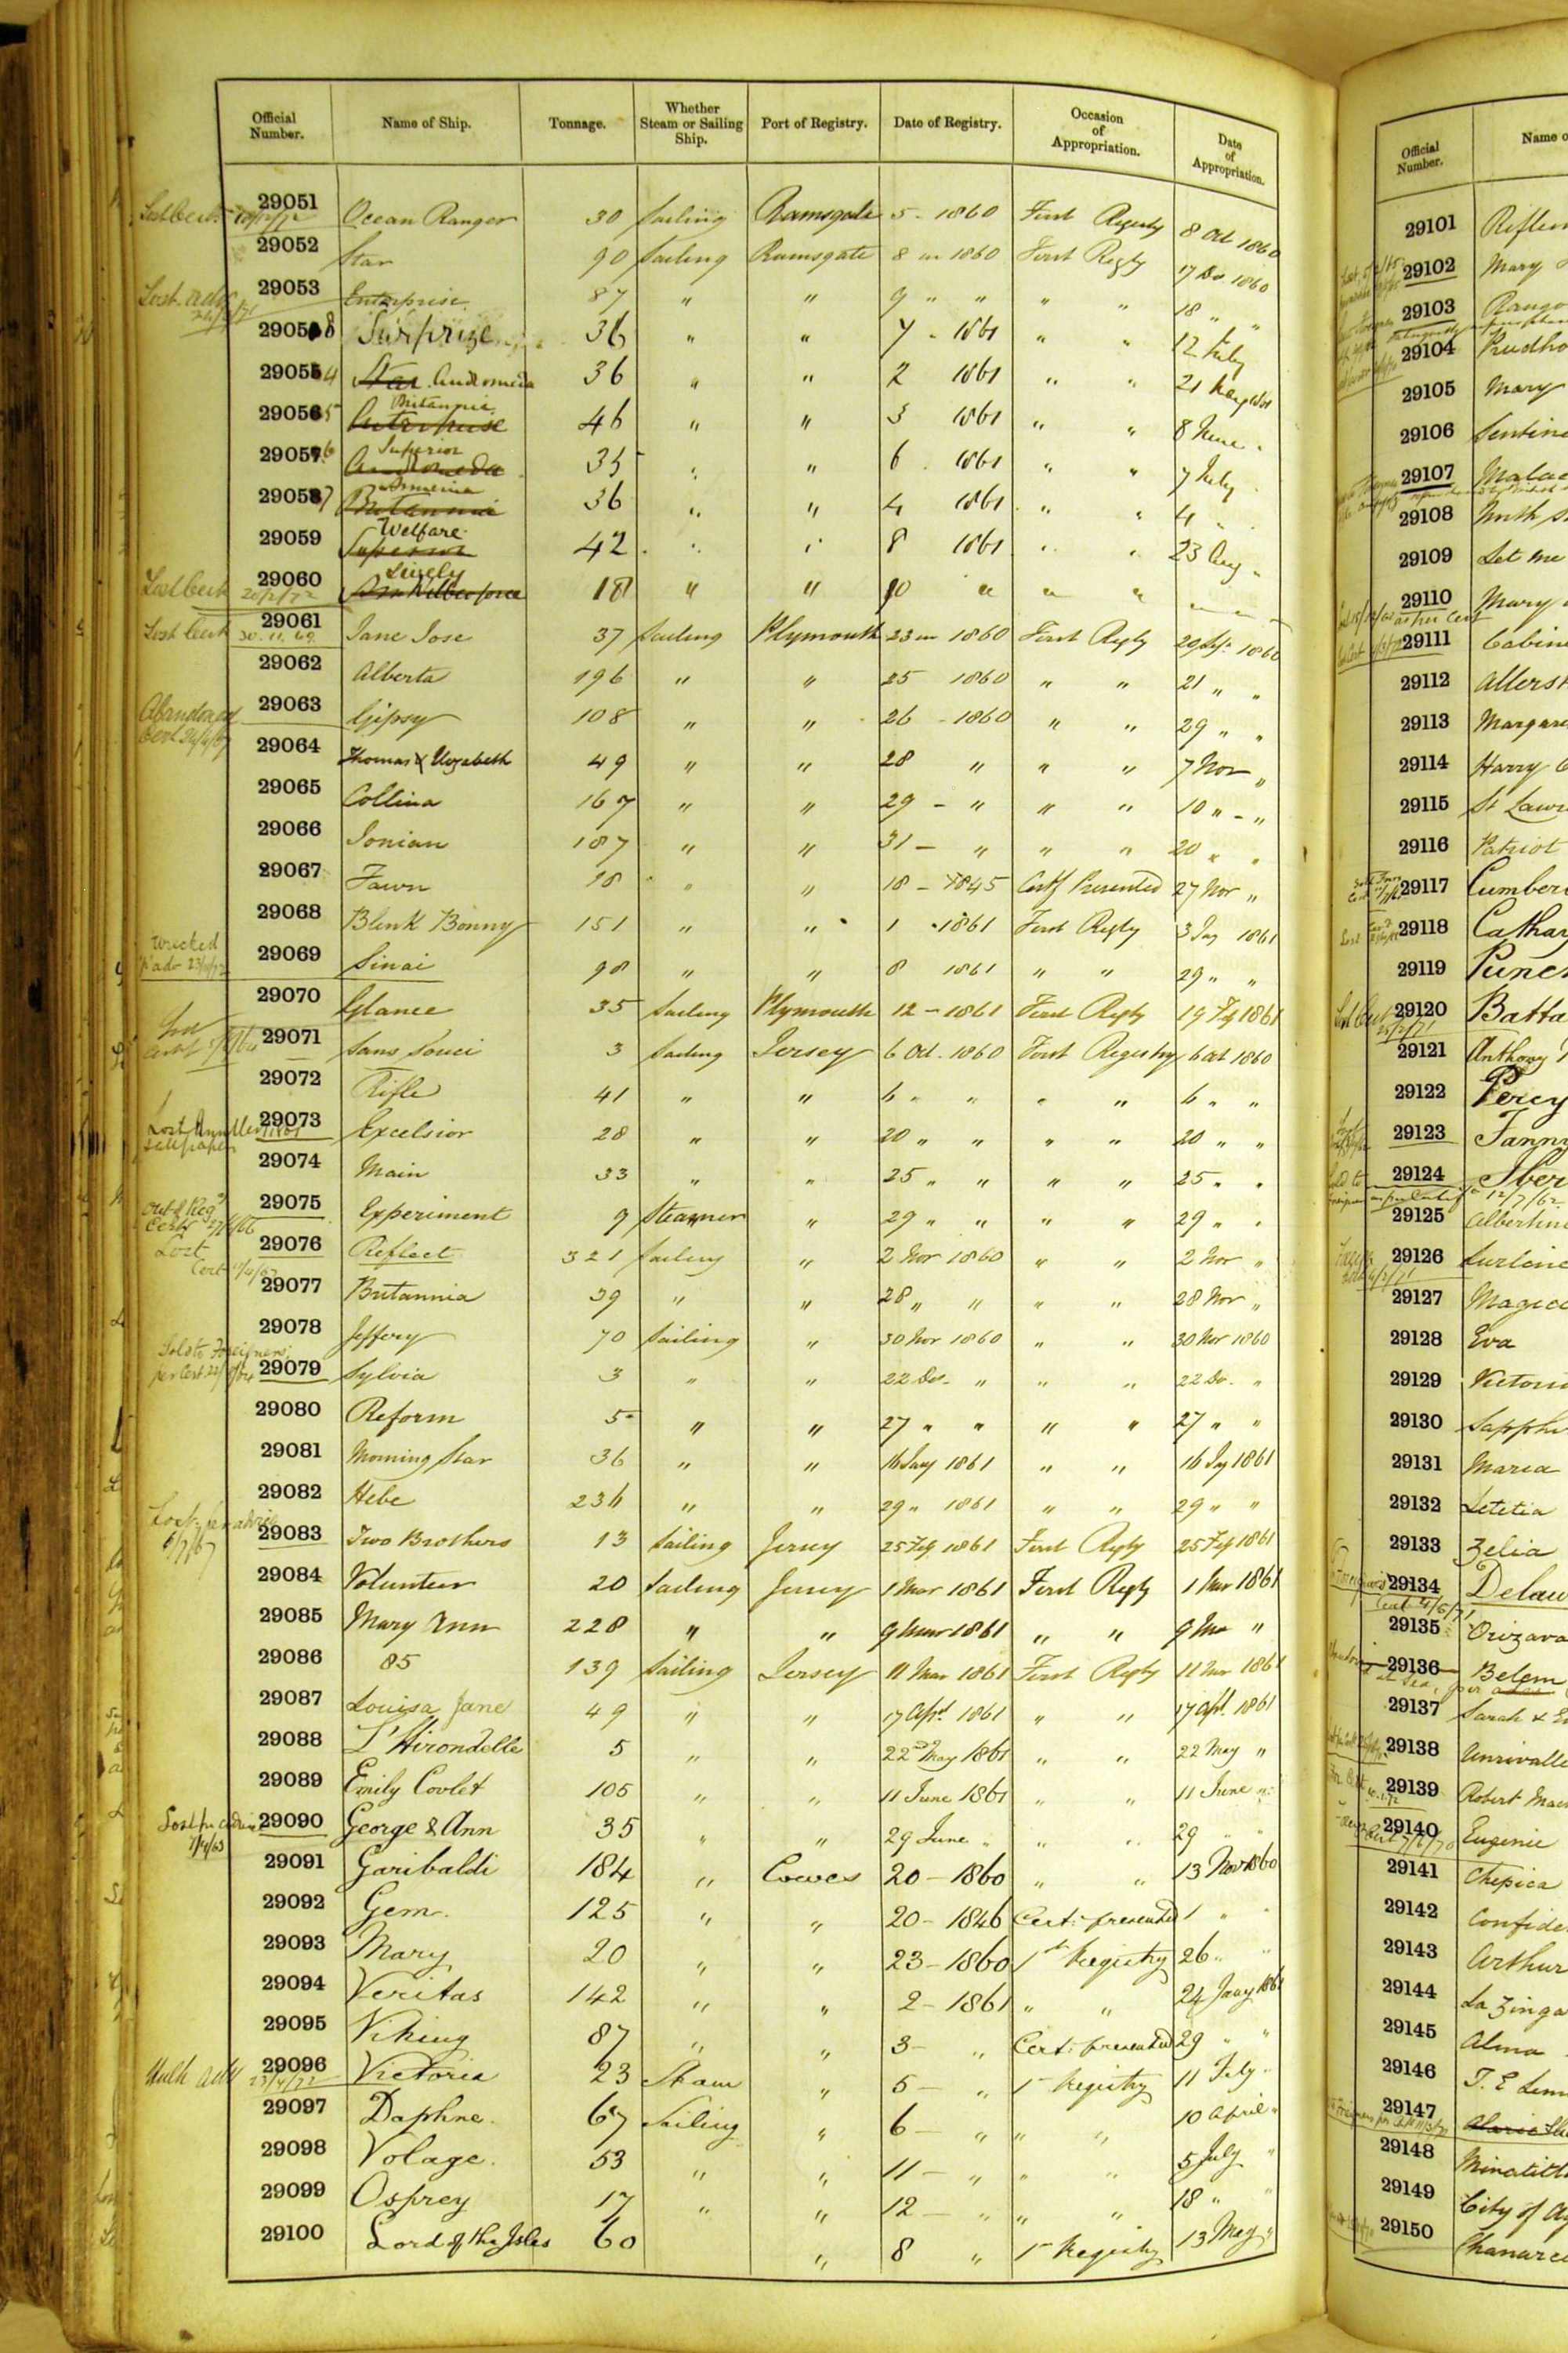 Official Number. Name of Ship. Tonnage. Whether Steam or Sailing Ship. Port of Registry. Date of Registry. Occasion of Appropriation. Date of Appropriation.
29051 Ocean Ranger 30 Sailing Ramsgate 5 - 1860 First Registy 8 Oct 1860
29052 Star 90 Sailing Ramsgate 8 in 1860 First Regty 17 Do. 1860
Lost. adv 29053 Enterprise 87 " " 9 " " " " 18 " "
29058 Surprize 36 " " 7 - 1861 " " 12 July
29054 Star Andromeda 36 " " 2 1861 " " 21
29055 Enterprise Britannia 46 " " 3 1861 " " 8 June "
29056 Andromeda Superior 35 " " 6 . 1861 " " 7 July
29057 Britannia Armenia 36 " " 4 1861 " " 4 "
29059 Superior Welfare 42 " " 8 1861 " " 23 Aug "
Lost Certt 20/2/72 29060 Lively 18 " " 10 " " " " "
Lost Certt 30.11.69 29061 Jane Jose 37 Sailing Plymouth 23 in 1860 First Regty 20 Sep 1860
29062 Alberta 196 " " 25 1860 " " 21 " "
Abandoned 29063 Gipsy 108 " " 26 - 1860 " " 29 " "
29064 Thomas & Elizabeth 49 " " 28 " " " 7 Nov "
29065 Collina 167 " " 29 - " " " 10 " - "
29066 Ionian 187 " " 31 - " " " 20 " "
29067 Fawn 18 " " 18 - 1845 Certf Presented 27 Nov "
29068 Blink Bonny 151 " " 1 - 1861 First Regty 3 Jay 1861
Wrecked 29069 Sinai 98 " " 8 1861 " " 29 " "
29070 Glance 35 Sailing Plymouth 12 - 1861 First Regty 19 Fey 1861
29071 Sans Souci 3 Sailing Jersey 6 Oct. 1860 First Registry 6 Oct 1860
29072 Rifle 41 " " 6 " " " " 6 " "
29073 Excelsior 28 " " 20 " " " " 20 " "
29074 Main 33 " " 25 " " " " 25 " "
29075 Experiment 9 Steamer " 29 " " " " 29 " "
Lost 29076 Reflect 321 Sailing " 2 Nov 1860 " " 2 Nov "
29077 Britannia 39 " " 28 " " " " 28 Nov "
29078 Jeffery 70 Sailing " 30 Nov 1860 " " 30 Nov 1860
Sold to Foreigners per Cert 29079 Sylvia 3 " " 22 Dec. " " " 22 De. "
29080 Reform 5 " " 27 " " " " 27 " "
29081 Morning Star 36 " " 16 Jany 1861 " " 16 Jay 1861
29082 Hebe 236 " " 29 " 1861 " " 29 " "
Lost per advice 29083 Two Brothers 13 Sailing Jersey 25 Fey 1861 First Regty 25 Fey 1861
29084 Volunteer 20 Sailing Jersey 1 Mar 1861 First Regty 1 Mar 1861
29085 Mary Ann 228 " " 9 Mar 1861 " " 9 Mar "
29086 85 139 Sailing Jersey 11 Mar 1861 First Regty 11 Mar 1861
29087 Louisa Jane 49 " " 17 Apl 1861 " " 17 Apl. 1861
29088 L'Hirondelle 5 " " 22nd May 1861 " " 22 May "
29089 Emily Covlet 105 " " 11 June 1861 " " 11 June "
Lost pr advice 29090 George & Ann 35 " " 29 June " " " 29 " "
29091 Garibaldi 184 " Cowes 20 - 1860 " " 13 Nov 1860
29092 Gem 125 " " 20 - 1846 Cert: presented 1 " "
29093 Mary 20 " " 23 - 1860 1st Registry 26 " "
29094 Veritas 142 " " 2 - 1861 " " 24 Jany 1861
29095 Viking 87 " " 3 - " Cert: presented 29 " "
23/4/72 29096 Victoria 23 Steam " 5 - " 1st Registry 11 Feby "
29097 Daphne 67 Sailing " 6 - " " " 10 April "
29098 Volage 53 " " 11 - " " " 5 July "
29099 Osprey 17 " " 12 - " " " 18 " "
29100 Lord of the Isles 60 " 8 " 1st Registry 13 May "
Official Number. Name o
29101
29102 Mary
29103
29104 Prudho
29105 Mary
29106 Sentine
29107 Malac
29108 North S
29109 Let me
29110 Mary
29111 Cabine
29112 Allers
29113 Margare
29114 Harry
29115 St Lawr
29116 Patriot
29117 Cumber
29118 Cathar
29119 Punch
29120 Batta
29121 Anthony
29122 Percy
29123 Fanny
29124 Iber
29125 Albertine
29126 Lurline
29127 Magic
29128 Eva
29129 Victori
29130 Sapphi
29131 Maria
29132 Letetia
29133 Zelia
29134 Delaw
29135 Orizava
29136 Belem
29137 Sarah & E
29138 Unrivalle
29139 Robert Mac
29140 Eugenie
29141 Chepica
29142 Confide
29143 Arthur
29144 La Zinga
29145 Alma
29146 T. E Lem
29147
29148 Minatitl
29149 City of A
29150 Chanarc